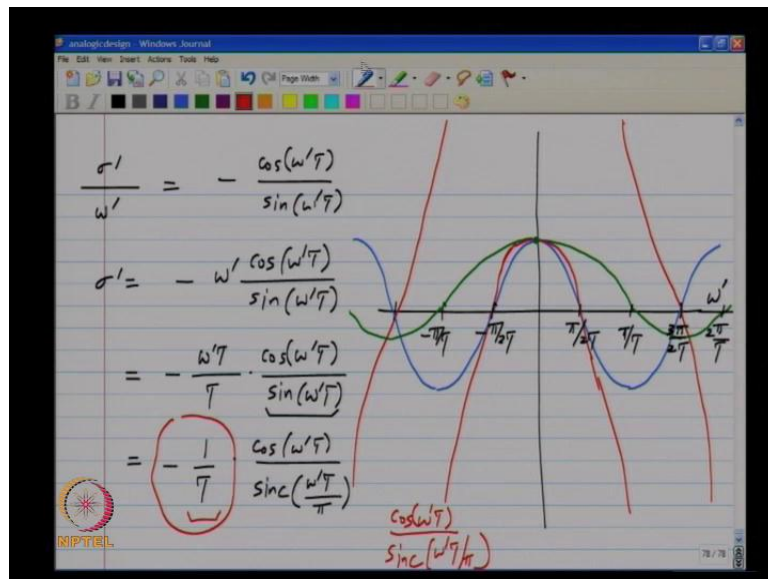 analogicdesign - Windows Journal
File Edit View Insert Actions Tools Help
Page Width
B I
σ'/ω' = - cos(ω'T)/sin(ω'T)
σ' = - ω' cos(ω'T)/sin(ω'T)
= - ω'T/T · cos(ω'T)/sin(ω'T)
= - 1/T · cos(ω'T)/sinc(ω'T/π)
cos(ω'T)/sinc(ω'T/π)
-π/T -π/2T π/2T π/T 3π/2T 2π/T ω'
NPTEL
78 / 78